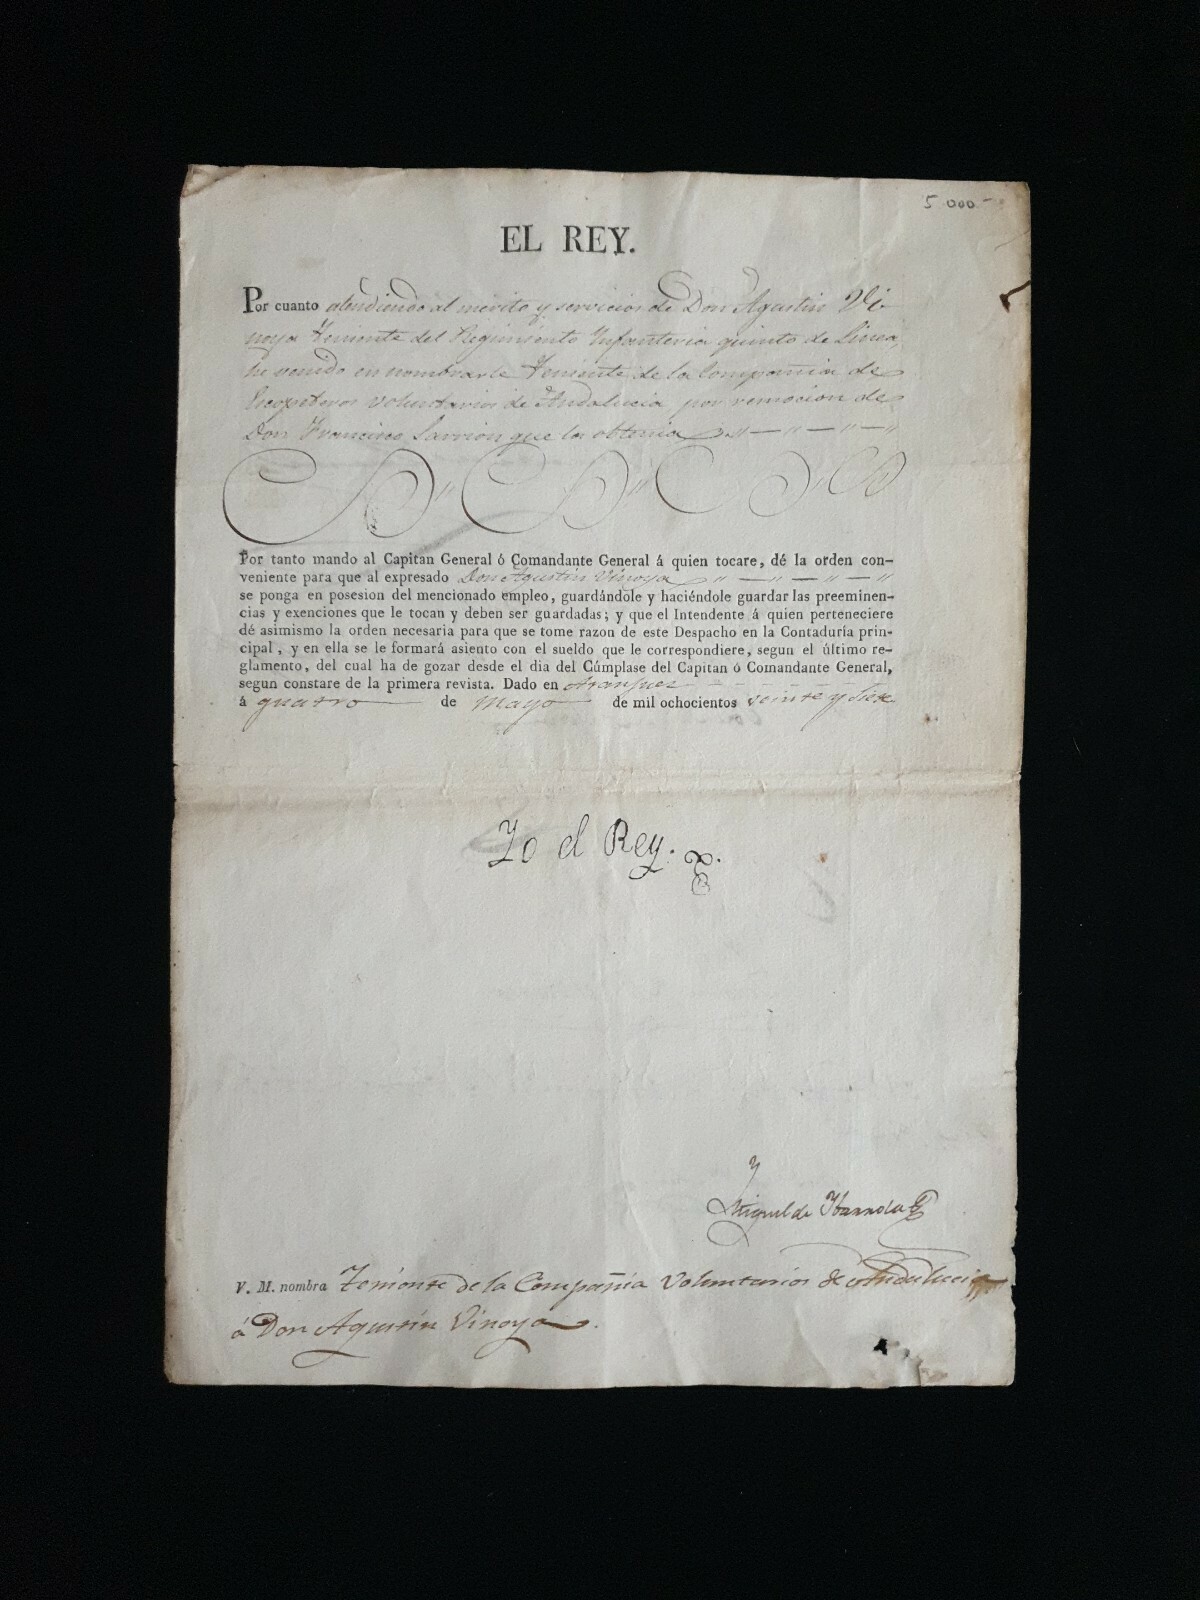 5.000.-
EL REY.
Por cuanto atendiendo al merito y servicios de Don Agustin Vi-
noya Teniente del Regimiento Infanteria quinto de Linea,
he venido en nombrarle Teniente de la Compañia de
Escopeteros voluntarios de Andalucia por remocion de
Don Francisco Sarrion que la obtenia
Por tanto mando al Capitan General ó Comandante General á quien tocare, dé la orden con-
veniente para que al expresado Don Agustin Vinoya
se ponga en posesion del mencionado empleo, guardándole y haciéndole guardar las preeminen-
cias y exenciones que le tocan y deben ser guardadas; y que el Intendente á quien perteneciere
dé asimismo la orden necesaria para que se tome razon de este Despacho en la Contaduría prin-
cipal, y en ella se le formará asiento con el sueldo que le correspondiere, segun el último re-
glamento, del cual ha de gozar desde el dia del Cúmplase del Capitan ó Comandante General,
segun constare de la primera revista. Dado en Aranjuez
á quatro de Mayo de mil ochocientos veinte y siete
Yo el Rey.
Miguel de Ybarrola
V. M. nombra Teniente de la Compañía Voluntarios de Andalucia
á Don Agustin Vinoya.